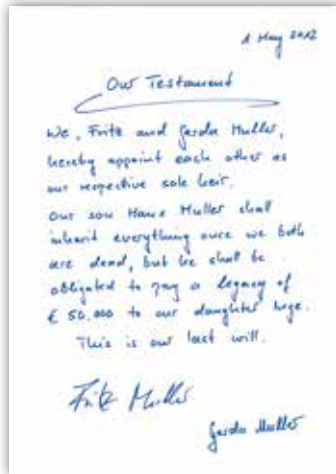 1 May 2012
Our Testament
We, Fritz and Gerda Muller,
hereby appoint each other as
our respective sole heir.
Our son Hans Muller shall
inherit everything once we both
are dead, but he shall be
obligated to pay a legacy of
€ 50.000 to our daughter Inge.
This is our last will.
Fritz Muller
Gerda Muller